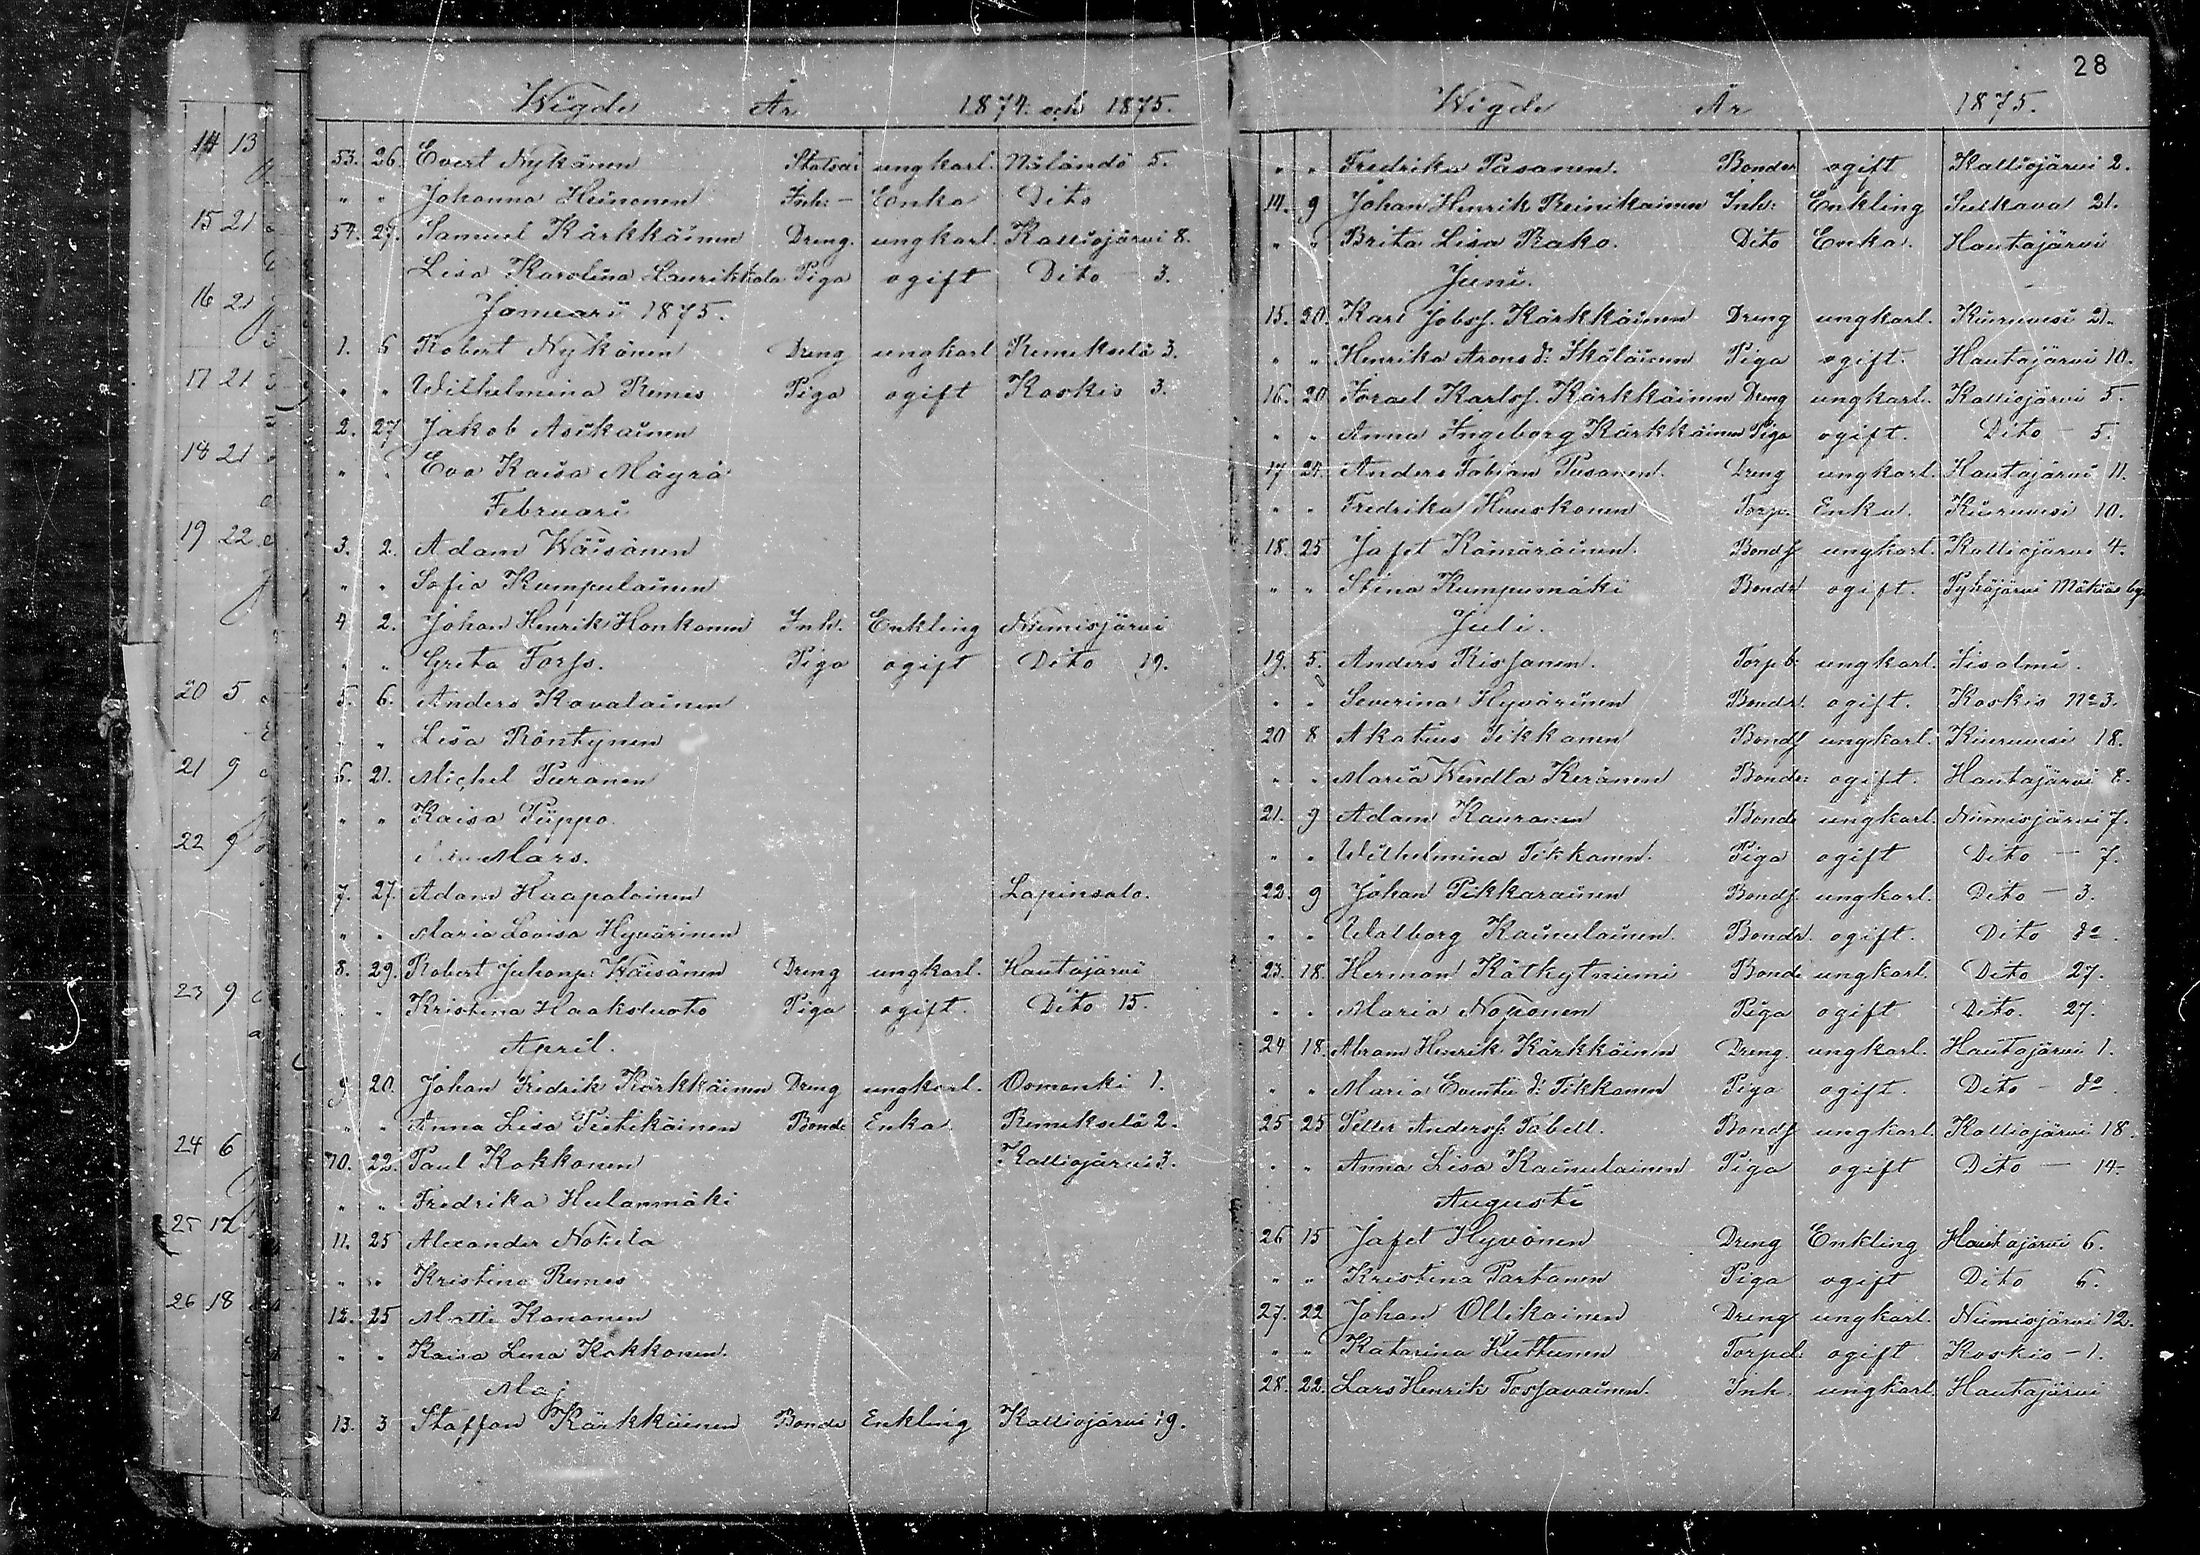 Wigde År 1874 och 1875.
53. 26. Evert Nykänen Statsdr ungkarl. Näländö 5.
" " Johanna Heinonen Inh: - Enka Dito
54. 27. Samuel Kärkkäinen Dreng. ungkarl. Kalliojärvi 8.
Lisa Karolina Laurikkala Piga ogift Dito - 3.
Januari 1875.
1. 6 Robert Nykänen Dreng ungkarl Remekselä 3.
" " Wilhelmina Remes Piga ogift Koskis 3.
2. 27 Jakob Asikainen
" " Eva Kaisa Mäyrä
Februari
3. 2. Adam Wäisänen
" " Sofia Kumpulainen
4. 2. Johan Henrik Honkanen Inh. Enkling Niemisjärvi
" " Greta Forss. Piga ogift Dito 19.
5. 6. Anders Kovalainen
" " Lisa Röntynen
6. 21. Michel Puranen
" " Kaisa Piippo.
Mars.
7. 27. Adam Haapalainen Lapinsalo.
" " Maria Lovisa Hyvärinen
8. 29. Robert Juhanp: Wäisänen Dreng ungkarl. Hautajärvi
" " Kristina Haakstuoto Piga ogift. Dito 15.
April.
9 20. Johan Fredrik Kärkkäinen Dreng ungkarl. Osmanki 1.
" " Anna Lisa Pietikäinen Bonde Enka. Remekselä 2.
10. 22. Paul Kokkonen Kalliojärvi 3.
" " Fredrika Hulanmäki
11. 25 Alexander Nokela
" " Kristina Remes
12. 25 Matti Kananen
" " Kaisa Lena Kokkonen.
Maj
13. 3 Staffan Kärkkäinen Bonde Enkling Kalliojärvi 19.
28
Wigde År 1875.
" " Fredrika Pasanen. Bonder ogift Kalliojärvi 2.
14. 9 Johan Henrik Reinikainen Inh: Enkling Sulkava 21.
" " Brita Lisa Rako. Dito Enka. Hautajärvi
Juni.
15. 20. Karl Jobsf. Kärkkäinen Dreng ungkarl. Kiuruvesi 21.
" " Henrika Arons d: Ikäläinen Piga ogift. Hautajärvi 10.
16. 20 Israel Karlsf. Kärkkäinen Dreng ungkarl. Kalliojärvi 5.
" " Anna Ingeborg Kärkkäinen Piga ogift. Dito - 5.
17 24. Anders Fabian Pasanen. Dreng ungkarl. Hautajärvi 11.
" " Fredrika Huuskonen Torp. Enka. Kiuruvesi 10.
18. 25 Jafet Kämäräinen. Bondf ungkarl. Kalliojärvi 4.
" " Stina Kumpumäki Bondd ogift. Pyhäjärvi Mäkiäs by.
Juli.
19. 5. Anders Rissanen. Torpb: ungkarl. Iisalmi.
" " Severina Hyvärinen Bondd. ogift. Koskis No 3.
20 8 Akatius Tikkanen Bondf ungkarl. Kiuruvesi 18.
" " Maria Wendla Keränen Bonde: ogift. Hautajärvi 8.
21. 9 Adam Kauranen Bonde ungkarl. Niemisjärvi 7.
" " Wilhelmina Tikkanen. Piga ogift Dito - 7.
22. 9 Johan Pikkarainen Bondf. ungkarl. Dito - 3.
" " Walborg Kainulainen. Bondd. ogift. Dito do.
23. 18. Herman Kätkytniemi Bonde ungkarl. Dito 27.
" " Maria Noponen Piga ogift Dito. 27.
24 18. Abram Henrik Kärkkäinen Dreng. ungkarl. Hautajärvi 1.
" " Maria Evertu d: Tikkanen Piga ogift. Dito - do.
25 25 Petter Andersf. Tabell. Bondf ungkarl. Kalliojärvi 18.
" " Anna Lisa Kainulainen Piga ogift Dito - 14.
Augusti
26 15 Jafet Hyvönen Dreng Enkling Hautajärvi 6.
" " Kristina Partanen Piga ogift Dito 6.
27. 22 Johan Ollikainen Dreng ungkarl. Niemisjärvi 12.
" " Katarina Huttunen Torpd: ogift Koskis - 1.
28. 22. Lars Henrik Tossavainen. Inh. ungkarl. Hautajärvi
14 13
15 21
16 21
17 21
18 21
19 22
20 5
21 9
22 9
23 9
24 6
25 12
26 18